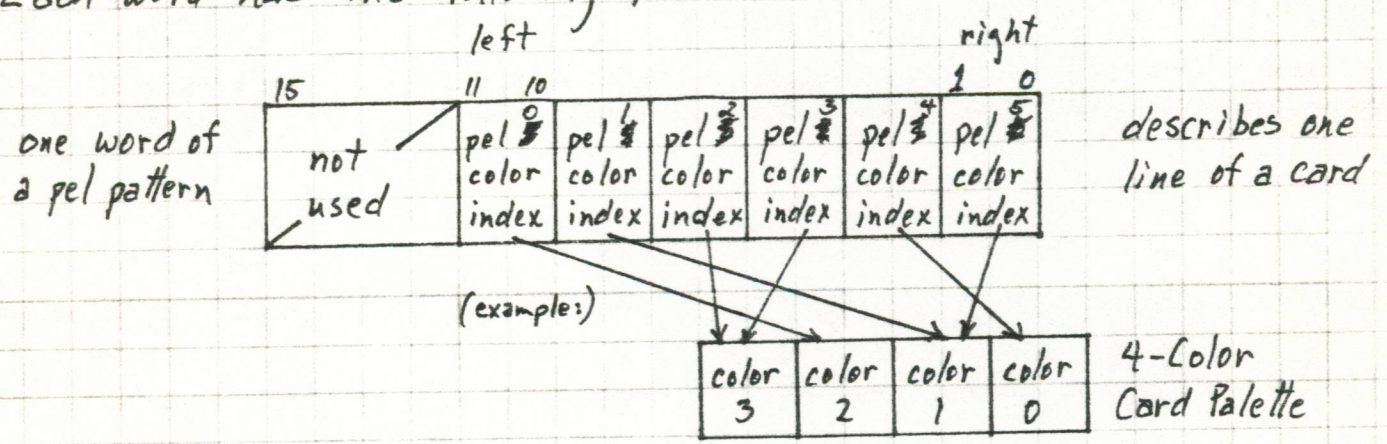 left
right
15
11 10
1 0
one word of
a pel pattern
not
used
pel 0
color
index
pel 1
color
index
pel 2
color
index
pel 3
color
index
pel 4
color
index
pel 5
color
index
describes one
line of a card
(example:)
color
3
color
2
color
1
color
0
4-Color
Card Palette